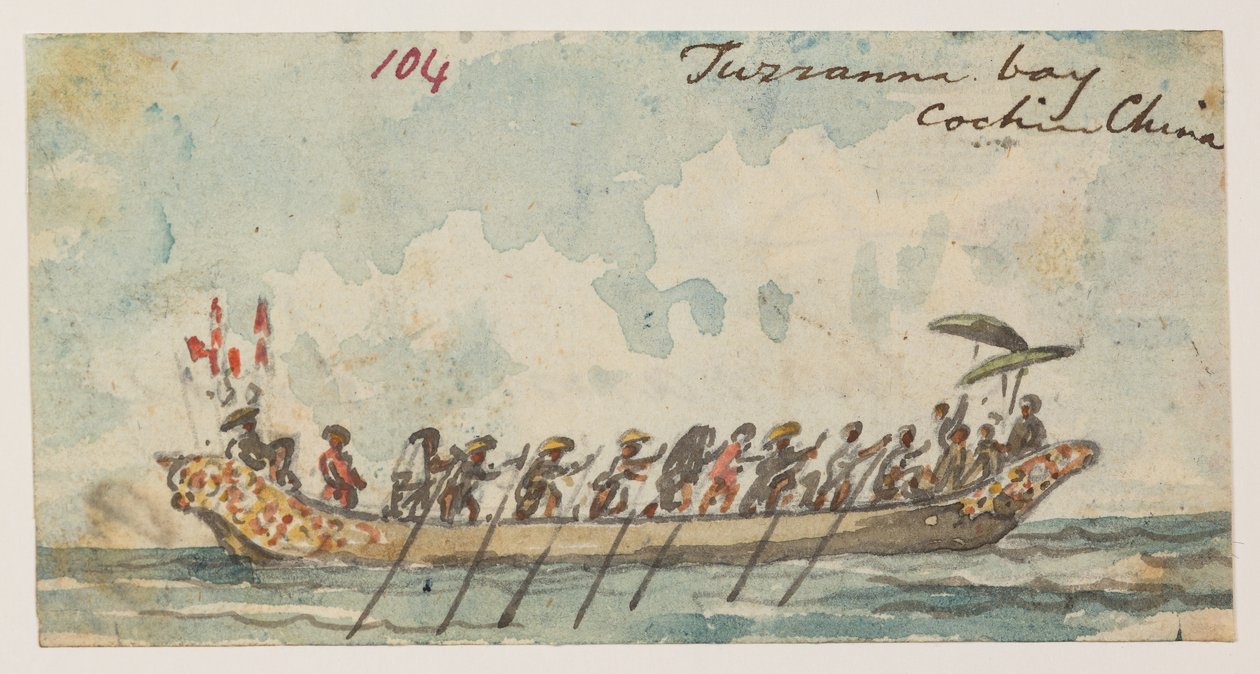 104
Turranna bay
Cochin China